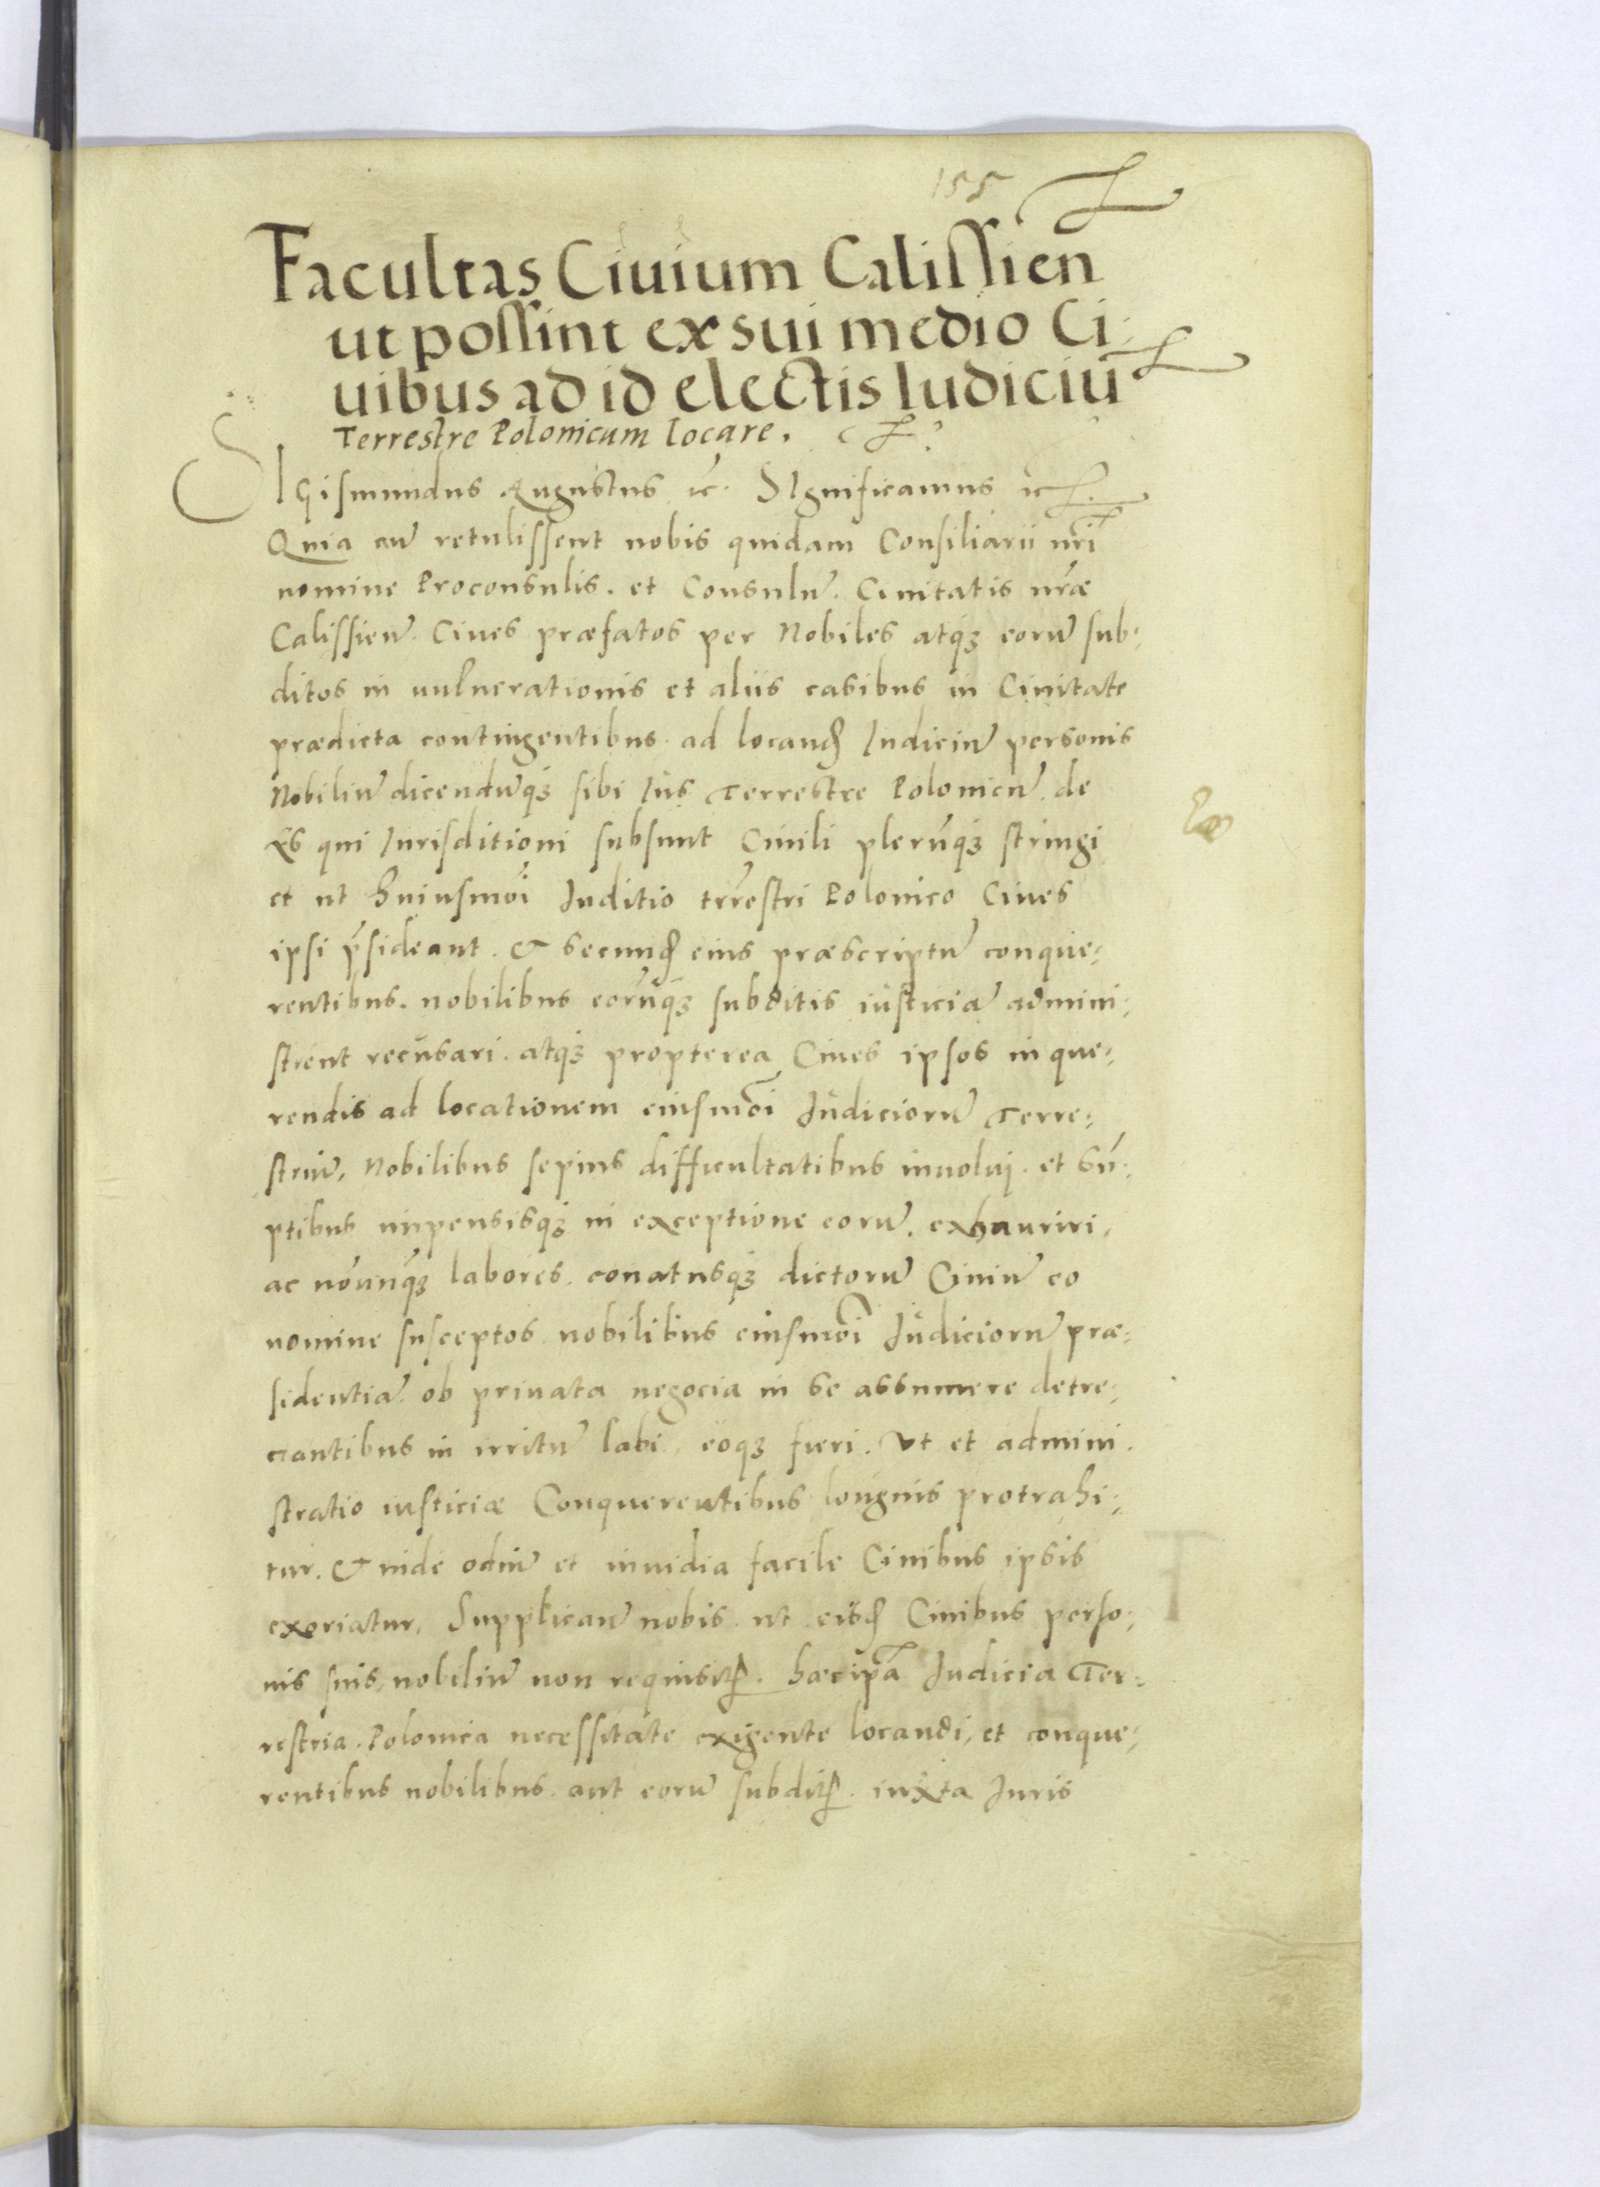 155
Facultas Ciuium Calissien
ut possint ex sui medio Ci-
uibus ad id electis Iudiciū
Terrestre Polonicum locare.
SIGismundus Augustus ꝛc. SIgnificamus ꝛc
Quia cū retulissent nobis quidam Consiliarii nr̄i
nomine Proconsulis. et Consulū. Ciuitatis nr̄æ
Calissieñ. Ciues præfatos per Nobiles atqꝫ eorū sub-
ditos in uulnerationis et aliis casibus in Ciuitate
prædicta contingentibus ad locanđ Iudiciū personis
Nobiliū dicendūqꝫ sibi Ius Terrestre Polonicū. de
qui Iurisditioni subsunt Ciuili plerūqꝫ stringi
et ut huiusmōi Iuditio tr̄restri Polonico Ciues
ipsi p̄sideant. & secunđ eius præscriptū conque-
rentibus. nobilibus eorūqꝫ subditis iusticiā admini-
strent recusari. atqꝫ propterea Ciues ipsos in que-
rendis ad locationem eiusmōi Iudiciorū Terre-
striū, Nobilibus sepius difficultatibus inuolui. et sū-
ptibus impensisqꝫ in exceptione eorū. exhauriri,
ac nōunqꝫ labores. conatusqꝫ dictorū Ciuiū eo
nomine susceptos nobilibus eiusmōi Iudiciorū præ-
sidentiā ob priuata negocia in se assumere detre-
ctantibus in irritū labi, eoqꝫ fieri. Vt et admini-
stratio iusticiæ Conquerentibus longius protrahi-
tur. & inde odiū et inuidia facile Ciuibus ipsis
exoriatur, Supplicarū nobis ut eisđ Ciuibus perso-
nis suis, nobiliū non requisitꝭ. hæcip̄a Iudicia Ter-
restria. Polonica necessitate exigente locandi, et conque-
rentibus nobilibus. aut eorū subditꝭ. iuxta Iuris